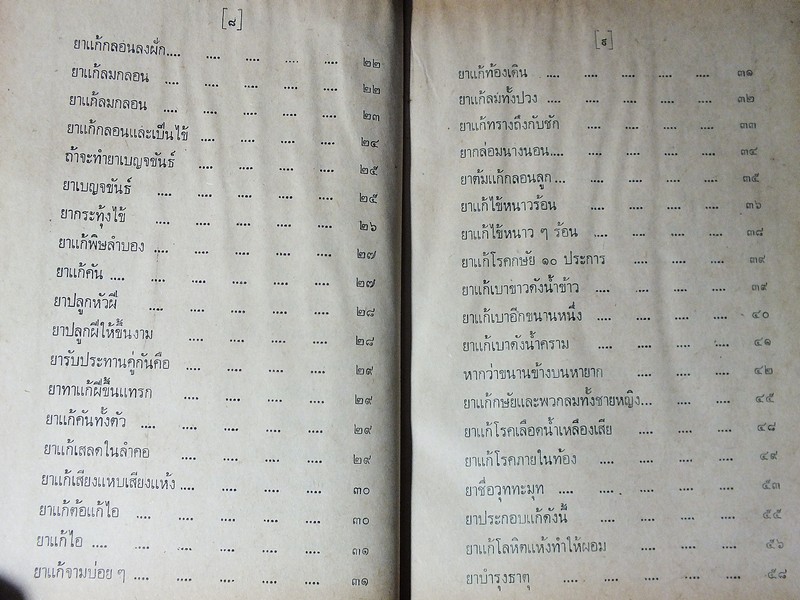 [๘]
ยาแก้กลอนลงฝัก.... .... .... .... .... ๒๒
ยาแก้ลมกลอน .... .... .... .... .... ๒๒
ยาแก้ลมกลอน .... .... .... .... .... ๒๓
ยาแก้กลอนและเป็นไข้ .... .... .... .... ๒๔
ถ้าจะทำยาเบญจขันธ์ .... .... .... .... ๒๕
ยาเบญจขันธ์ .... .... .... .... .... ๒๕
ยากระทุ้งไข้ .... .... .... .... .... ๒๖
ยาแก้พิษลำบอง .... .... .... .... .... ๒๗
ยาแก้คัน .... .... .... .... .... .... ๒๗
ยาปลูกหัวฝี .... .... .... .... .... ๒๘
ยาปลูกฝีให้ขึ้นงาม .... .... .... .... ๒๘
ยารับประทานคู่กันคือ .... .... .... .... ๒๙
ยาทาแก้ฝีขึ้นแทรก .... .... .... .... ๒๙
ยาแก้คันทั้งตัว .... .... .... .... .... ๒๙
ยาแก้เสลดในลำคอ .... .... .... .... ๒๙
ยาแก้เสียงแหบเสียงแห้ง .... .... .... .... ๓๐
ยาแก้ต้อแก้ไอ .... .... .... .... .... ๓๐
ยาแก้ไอ .... .... .... .... .... .... ๓๑
ยาแก้จามบ่อย ๆ .... .... .... .... .... ๓๑
[๙]
ยาแก้ท้องเดิน .... .... .... .... .... ๓๑
ยาแก้ลมทั้งปวง .... .... .... .... .... ๓๒
ยาแก้ทรางถึงกับชัก .... .... .... .... ๓๓
ยากล่อมนางนอน.... .... .... .... .... ๓๔
ยาต้มแก้กลอนลูก ... .... .... .... .... ๓๕
ยาแก้ไข้หนาวร้อน .... .... .... .... ๓๖
ยาแก้ไข้หนาว ๆ ร้อน .... .... .... .... ๓๘
ยาแก้โรคกษัย ๑๐ ประการ .... .... .... ๓๙
ยาแก้เบาขาวดังน้ำข้าว .... .... .... .... ๓๙
ยาแก้เบาอีกขนานหนึ่ง .... .... .... .... ๔๐
ยาแก้เบาดังน้ำคราม .... .... .... .... ๔๑
หากว่าขนานข้างบนหายาก .... .... .... ๔๒
ยาแก้กษัยและพวกลมทั้งชายหญิง... .... .... ๔๕
ยาแก้โรคเลือดน้ำเหลืองเสีย .... .... .... ๔๘
ยาแก้โรคภายในท้อง .... .... .... .... ๔๙
ยาชื่อวุททะมุท .... .... .... .... .... ๕๓
ยาประกอบแก้ดังนี้ .... .... .... .... ๕๕
ยาแก้โลหิตแห้งทำให้ผอม .... .... .... ๕๖
ยาบำรุงธาตุ .... .... .... .... .... ๕๘